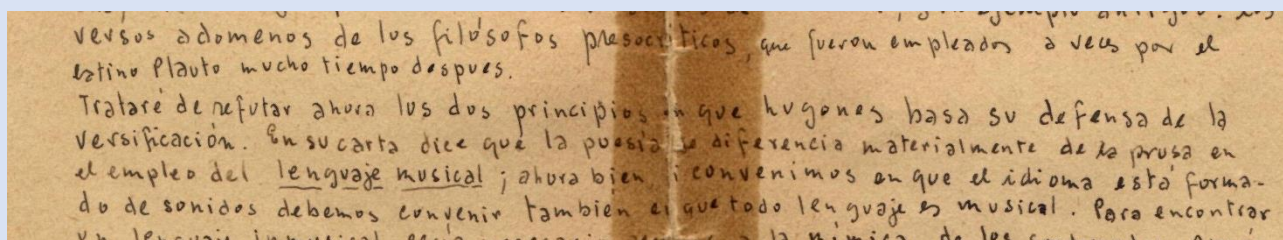 un ejemplo antiguo: los
versos adomenos de los filósofos presocráticos, que fueron empleados a veces por el
latino Plauto mucho tiempo despues.
Trataré de refutar ahora los dos principios en que hugones basa su defensa de la
versificación. En su carta dice que la poesía se diferencia materialmente de la prosa en
el empleo del lenguaje musical; ahora bien si convenimos en que el idioma está forma-
do de sonidos debemos convenir tambien en que todo lenguaje es musical. Para encontrar
un lenguaje la mímica de los